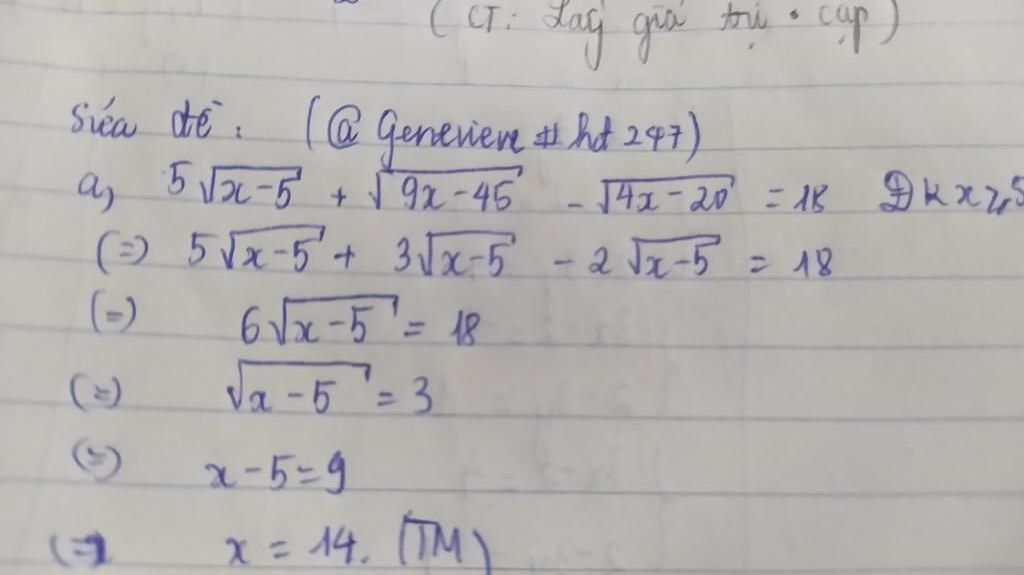 (CT: Lấy giá trị • cạp)
Sửa đề: (@ Genevieve # hdt 247)
a, 5√(x-5) + √(9x-45) - √(4x-20) = 18 ĐK x ≥ 5
(=) 5√(x-5) + 3√(x-5) - 2√(x-5) = 18
(=) 6√(x-5) = 18
(=) √(x-5) = 3
(=) x-5=9
(=) x = 14. (TM)